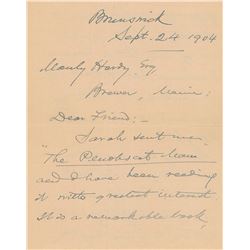 Brunswick
Sept. 24 1904
Manly Hardy, Esq
Brewer, Maine:
Dear Friend:-
Sarah sent me
"The Penobscot Man"
and I have been reading
it with greatest interest
It is a remarkable book,